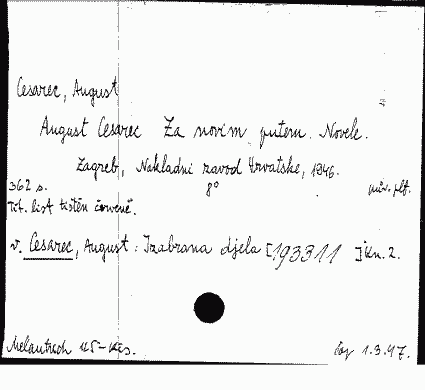 Cesarec, August
August Cesarec Za novim putem. Novele.
Zagreb, Nakladni zavod Hrvatske, 1946.
362 s. 8° pův. plt.
Tit. list tištěn červeně.
v. Cesarec, August: Izabrana djela [193311 ] kn. 2.
Melantrich 45-Kčs. 1.3.47.